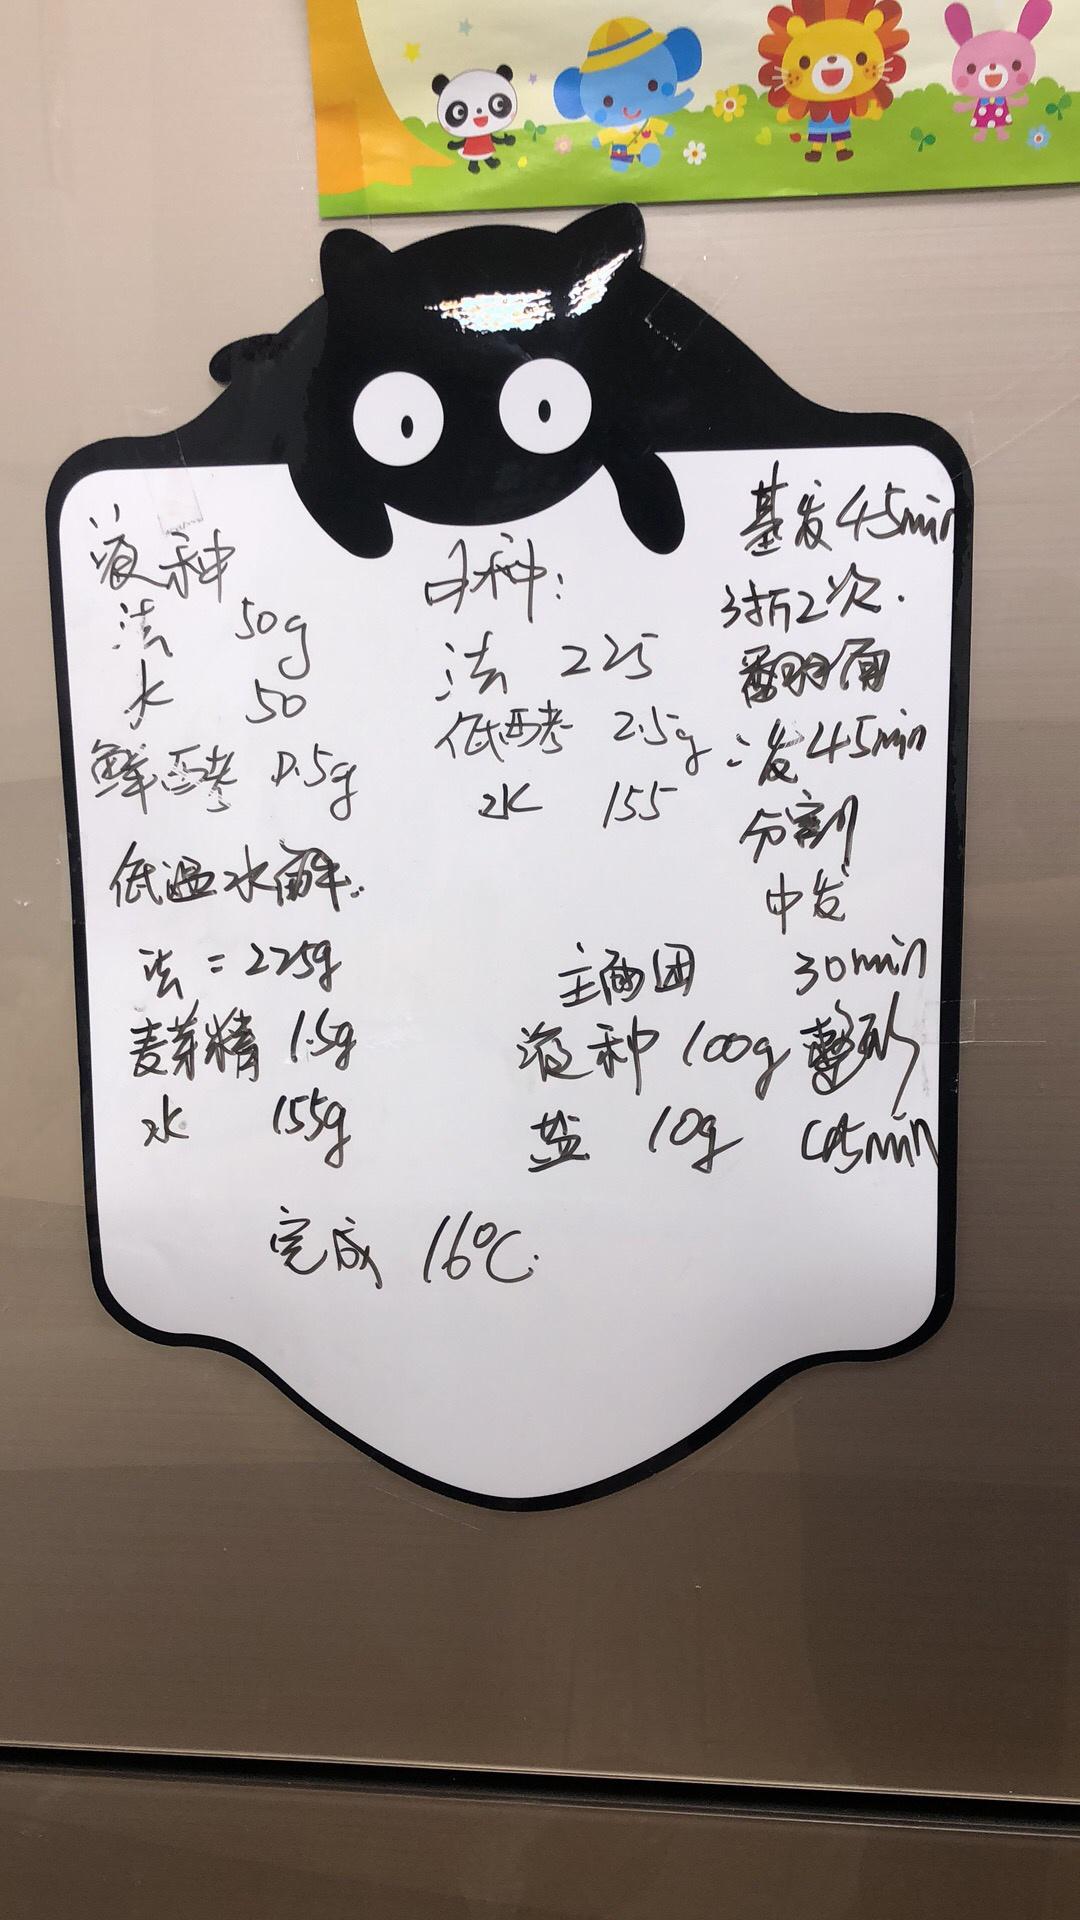 液种
法 50g
水 50
鲜酵 0.5g
低温水解.
法 = 225g
麦芽精 1.5g
水 155g
中种:
法 225
低酵 2.5g
水 155
主面团
液种 100g
盐 10g
完成 16℃.
基发45min
3折2次.
翻面
二发45min
分割
中发
30min
整形
45min